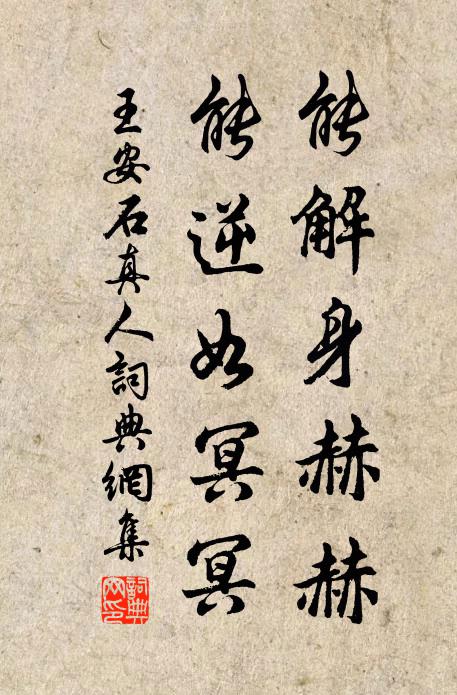 能解身赫赫
能逆如冥冥
王安石真人詞典網集
詞典
網印